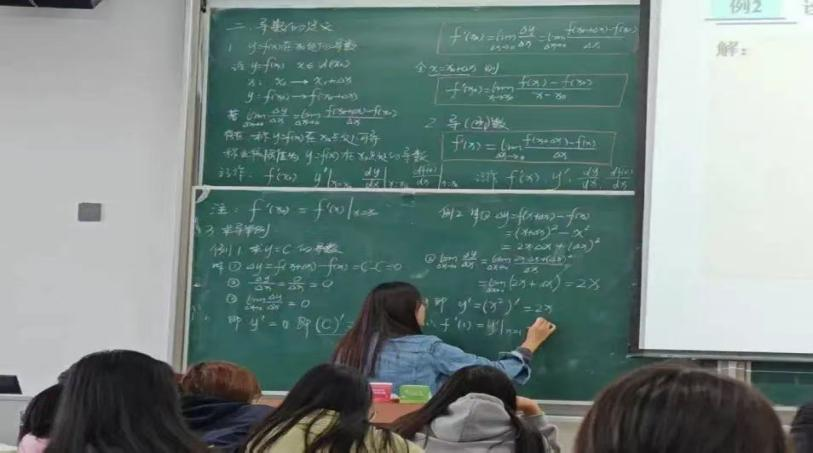 二、导数的定义
1. y=f(x)在x₀处的导数
设 y=f(x) x∈U(x₀)
x: x₀ → x₀+Δx
y: f(x₀)→f(x₀+Δx)
若 lim_{Δx→0} Δy/Δx = lim_{Δx→0} (f(x₀+Δx)-f(x₀))/Δx
存在 称 y=f(x) 在 x₀点处可导
称此极限值为 y=f(x) 在 x₀点处的导数
记作: f'(x₀) y'|_{x=x₀} dy/dx|_{x=x₀} df(x)/dx|_{x=x₀}
f'(x₀)=lim_{Δx→0} Δy/Δx = lim_{Δx→0} (f(x₀+Δx)-f(x₀))/Δx
令 x=x₀+Δx 则
f'(x₀)=lim_{x→x₀} (f(x)-f(x₀))/(x-x₀)
2. 导(函)数
f'(x)=lim_{Δx→0} (f(x+Δx)-f(x))/Δx
记作 f'(x), y', dy/dx, df(x)/dx
注: f'(x₀) = f'(x)|_{x=x₀}
3. 求导举例
例1 求y=C的导数
解 ① Δy=f(x+Δx)-f(x)=C-C=0
② Δy/Δx = 0/Δx = 0
③ lim_{Δx→0} Δy/Δx = 0
即 y'=0 即 (C)'=
例2 解① Δy=f(x+Δx)-f(x)
=(x+Δx)²-x²
=2xΔx+(Δx)²
② lim_{Δx→0} Δy/Δx = lim_{Δx→0} (2xΔx+(Δx)²)/Δx
=lim_{Δx→0}(2x+Δx)=2x
即 y'=(x²)'=2x
∴ f'(1)=y'|_{x=1}
例2
解: